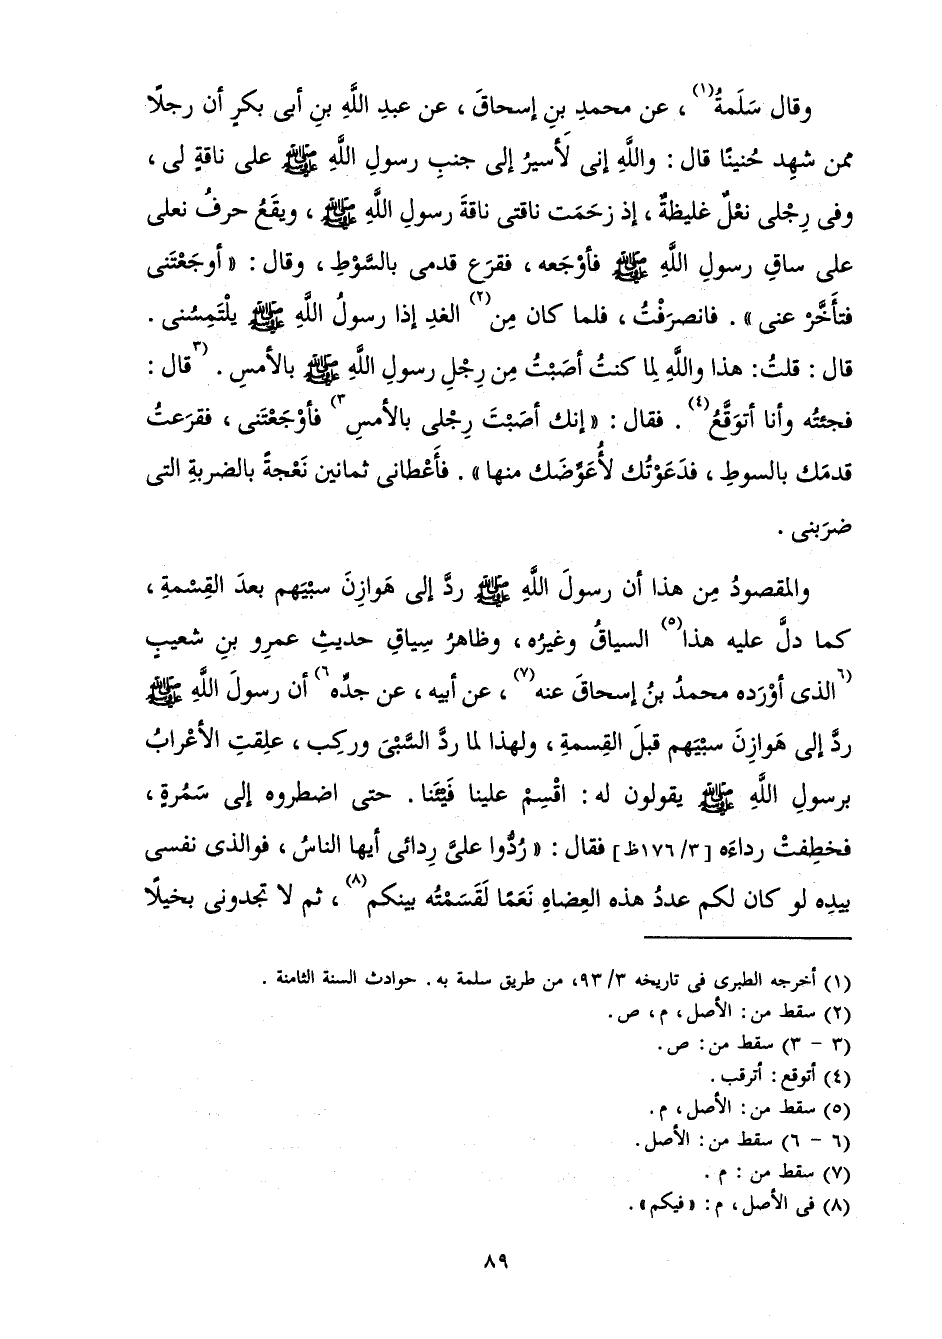 وقال سَلَمةُ(١) ، عن محمدِ بنِ إسحاقَ ، عن عبدِ اللَّهِ بنِ أبى بكرٍ أن رجلًا
ممن شهِد حُنينًا قال : واللَّهِ إنى لَأسيرُ إلى جنبِ رسولِ اللَّهِ ﷺ على ناقةٍ لى ،
وفى رِجْلى نعْلٌ غليظةٌ ، إذ زحَمَت ناقتى ناقةَ رسولِ اللَّهِ ﷺ ، ويقَعُ حرفُ نعلى
على ساقِ رسولِ اللَّهِ ﷺ فأوْجَعه ، فقرَع قدمى بالسَّوْطِ ، وقال : « أوجَعْتَنى
فتأَخَّرْ عنى » . فانصرَفْتُ ، فلما كان مِن(٢) الغدِ إذا رسولُ اللَّهِ ﷺ يلْتَمِسُنى .
قال : قلتُ : هذا واللَّهِ لِما كنتُ أصَبْتُ مِن رِجْلِ رسولِ اللَّهِ ﷺ بالأمسِ . (٣قال :
فجئتُه وأنا أتوَقَّعُ(٤) . فقال : « إنك أصَبْتَ رِجْلى بالأمسِ٣) فأوْجَعْتَنى ، فقرَعتُ
قدمَك بالسوطِ ، فدَعَوْتُك لأُعَوِّضَك منها » . فأَعْطانى ثمانين نَعْجةً بالضربةِ التى
ضرَبنى .
والمقصودُ مِن هذا أن رسولَ اللَّهِ ﷺ ردَّ إلى هَوازِنَ سبْيَهم بعدَ القِسْمةِ ،
كما دلَّ عليه هذا(٥) السياقُ وغيرُه ، وظاهرُ سِياقِ حديثِ عمرِو بنِ شعيبٍ
(٦الذى أوْرَده محمدُ بنُ إسحاقَ عنه(٧) ، عن أبيه ، عن جدِّه٦) أن رسولَ اللَّهِ ﷺ
ردَّ إلى هَوازِنَ سبْيَهم قبلَ القِسمةِ ، ولهذا لما ردَّ السَّبْىَ وركِب ، علِقتِ الأعْرابُ
برسولِ اللَّهِ ﷺ يقولون له : اقْسِمْ علينا فَيْئَنا . حتى اضطروه إلى سَمُرةٍ ،
فخطِفتْ رداءَه [٣/ ١٧٦ظ] فقال : « رُدُّوا علىَّ رِدائى أيها الناسُ ، فوالذى نفسى
بيدِه لو كان لكم عددُ هذه العِضاهِ نَعَمًا لَقَسَمْتُه بينكم(٨) ، ثم لا تجدونى بخيلًا
(١) أخرجه الطبرى فى تاريخه ٣/ ٩٣، من طريق سلمة به . حوادث السنة الثامنة .
(٢) سقط من : الأصل ، م ، ص .
(٣ - ٣) سقط من : ص .
(٤) أتوقع : أترقب .
(٥) سقط من : الأصل ، م .
(٦ - ٦) سقط من : الأصل .
(٧) سقط من : م .
(٨) فى الأصل ، م : « فيكم » .
٨٩